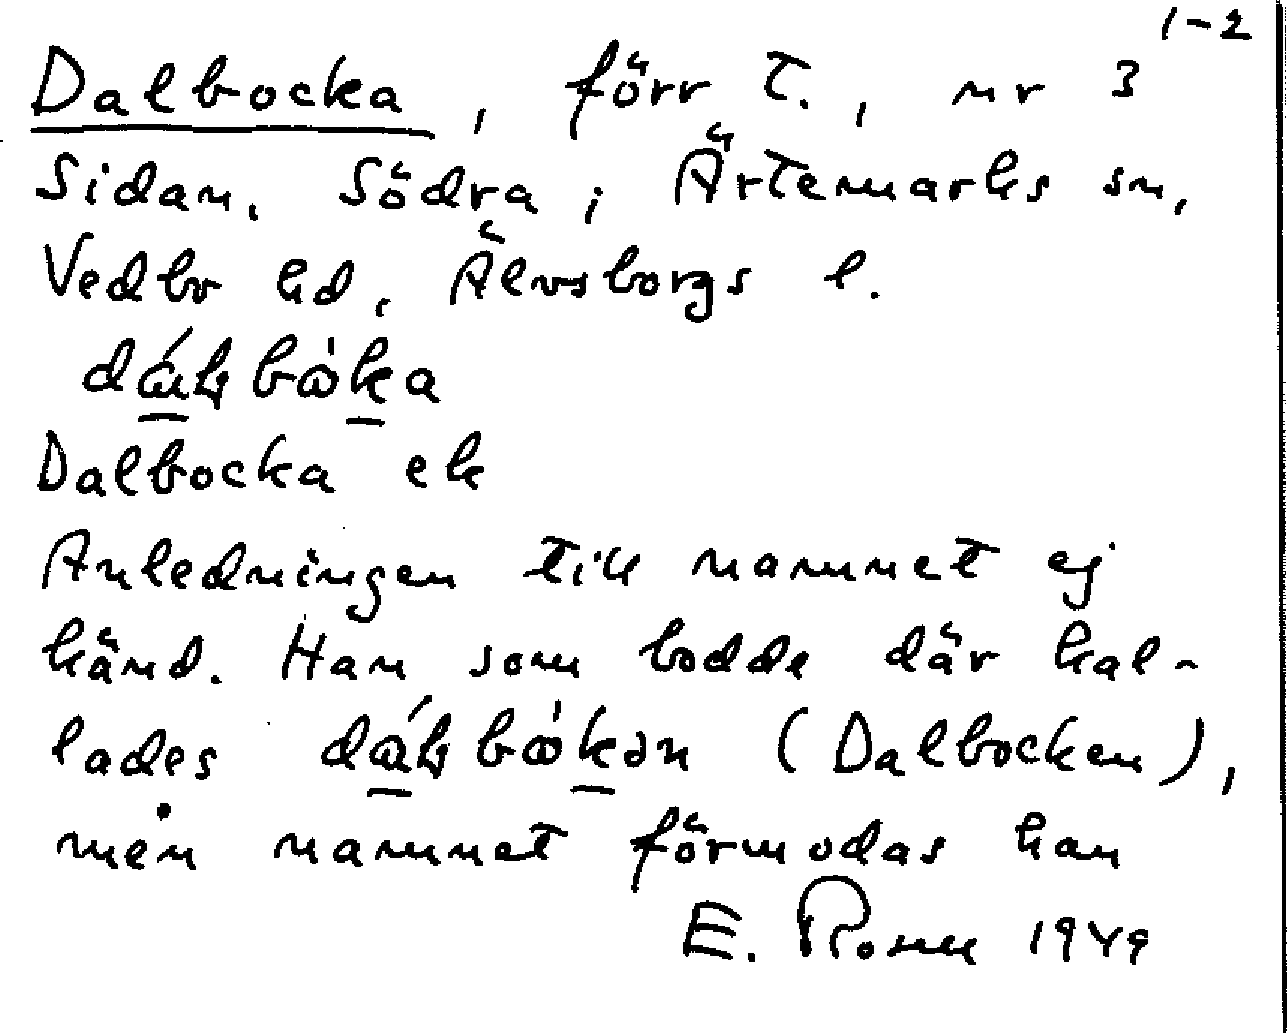 1-2
Dalbocka, förr t., nr 3
Sidan. Södra i Ärtemarks sn,
Vedbo hd, Älvsborgs l.
Dalbocka ek
Anledningen till namnet ej
känd. Han som bodde där kal-
lades (Dalbocken),
men namnet förmodas han
E. 1949